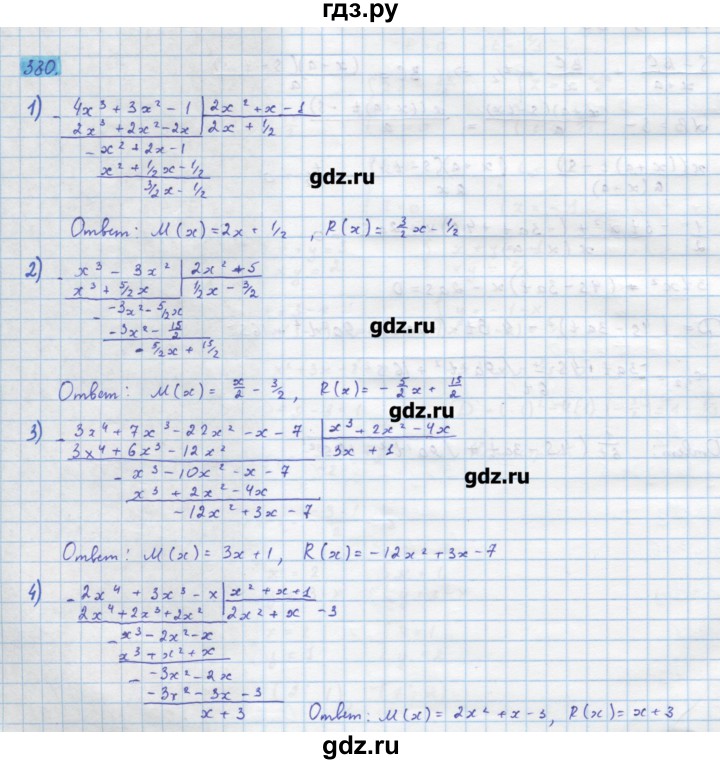 гдз.ру
380.
1) - 4x³ + 3x² - 1 | 2x² + x - 1
2x³ + 2x² - 2x | 2x + 1/2
- x² + 2x - 1
x² + 1/2 x - 1/2
3/2 x - 1/2
gdz.ru
Ответ: M(x) = 2x + 1/2 , R(x) = 3/2 x - 1/2
2) - x³ - 3x² | 2x² + 5
x³ + 5/2 x | 1/2 x - 3/2
- -3x² - 5/2 x
-3x² - 15/2
- 5/2 x + 15/2
gdz.ru
Ответ: M(x) = x/2 - 3/2 , R(x) = - 5/2 x + 15/2
gdz.ru
3) - 3x⁴ + 7x³ - 22x² - x - 7 | x³ + 2x² - 4x
3x⁴ + 6x³ - 12x² | 3x + 1
- x³ - 10x² - x - 7
x³ + 2x² - 4x
-12x² + 3x - 7
gdz.ru
Ответ: M(x) = 3x + 1, R(x) = -12x² + 3x - 7
4) - 2x⁴ + 3x³ - x | x² + x + 1
2x⁴ + 2x³ + 2x² | 2x² + x - 3
- x³ - 2x² - x
x³ + x² + x
- -3x² - 2x
-3x² - 3x - 3
x + 3
Ответ: M(x) = 2x² + x - 3, R(x) = x + 3
gdz.ru